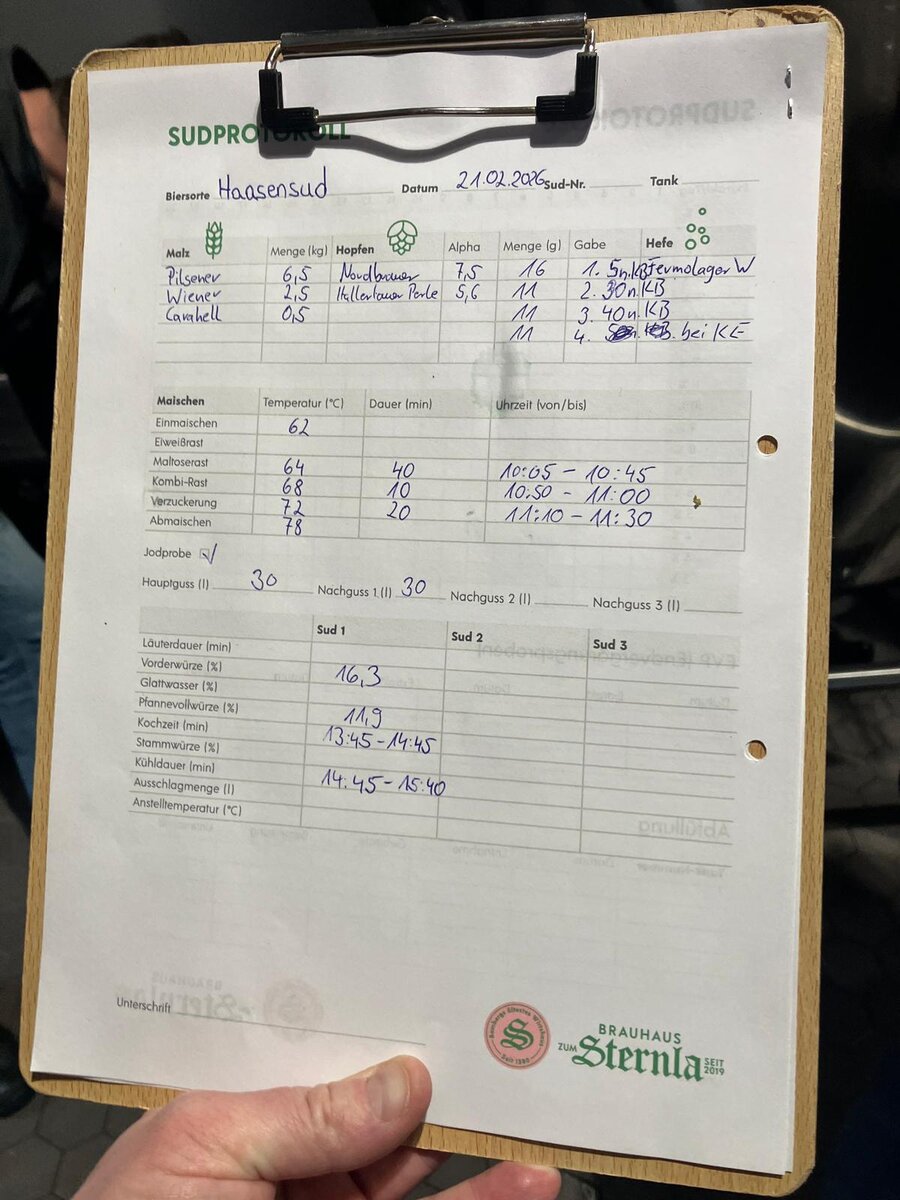 SUDPROTOKOLL
Biersorte Haasensud Datum 21.02.2026 Sud-Nr. Tank
Malz Menge (kg) Hopfen Alpha Menge (g) Gabe Hefe
Pilsener 6,5 Nordbrauer 7,5 16 1. 5n.KB Fermolager W
Wiener 2,5 Hallertauer Perle 5,6 11 2. 30n.KB
Carahell 0,5 11 3. 40n.KB
11 4. bei KE
Maischen Temperatur (°C) Dauer (min) Uhrzeit (von/bis)
Einmaischen 62
Eiweißrast
Maltoserast 64 40 10:05 - 10:45
Kombi-Rast 68 10 10:50 - 11:00
Verzuckerung 72 20 11:10 - 11:30
Abmaischen 78
Jodprobe
Hauptguss (l) 30 Nachguss 1 (l) 30 Nachguss 2 (l) Nachguss 3 (l)
Sud 1 Sud 2 Sud 3
Läuterdauer (min)
Vorderwürze (%) 16,3
Glattwasser (%)
Pfannevollwürze (%) 11,9
Kochzeit (min) 13:45 - 14:45
Stammwürze (%)
Kühldauer (min) 14:45 - 15:40
Ausschlagmenge (l)
Anstelltemperatur (°C)
Unterschrift
Bambergs ältestes Wirtshaus
S
Seit 1380
BRAUHAUS
ZUM Sternla SEIT 2019